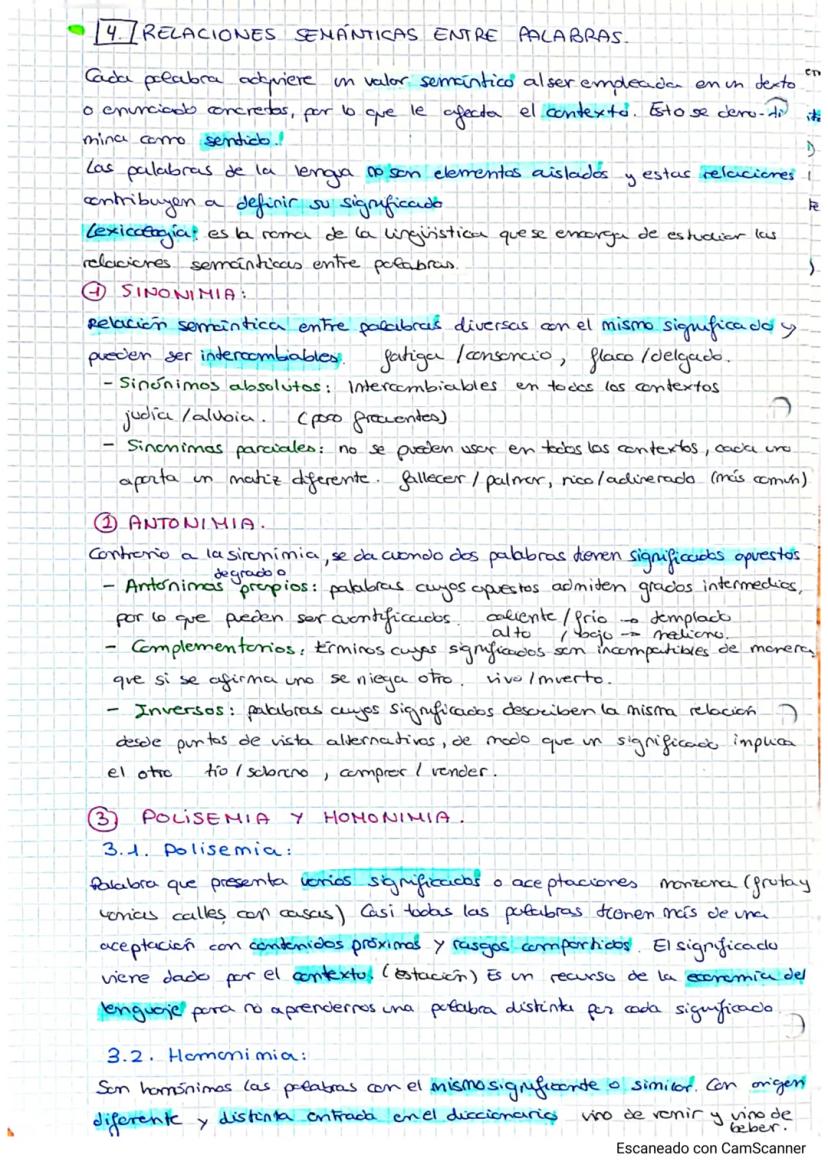 4. RELACIONES SEMÁNTICAS ENTRE PALABRAS.
Cada palabra adquiere un valor semántico al ser empleada en un texto
o enunciado concretos, por lo que le afecta el contexto. Esto se deno-
mina como sentido.
Las palabras de la lengua no son elementos aislados y estas relaciones
contribuyen a definir su significado
Lexicología: es la rama de la lingüística que se encarga de estudiar las
relaciones semánticas entre palabras.
1 SINONIMIA:
Relación semántica entre palabras diversas con el mismo significado y
pueden ser intercambiables. fatiga / cansancio, flaco / delgado.
- Sinónimos absolutos: Intercambiables en todos los contextos
judía / alubia. (poco frecuentes)
- Sinónimas parciales: no se pueden usar en todos los contextos, cada uno
aporta un matiz diferente. fallecer / palmar, rico / adinerado (más común)
2 ANTONIMIA.
Contrario a la sinonimia, se da cuando dos palabras tienen significados opuestos
de grado o
- Antónimas propios: palabras cuyos opuestos admiten grados intermedios,
por lo que pueden ser cuantificados. caliente / frío → templado
alto / bajo → mediano.
- Complementarios: términos cuyos significados son incompatibles de manera
que si se afirma uno se niega otro. vivo / muerto.
- Inversos: palabras cuyos significados describen la misma relación
desde puntos de vista alternativos, de modo que un significado implica
el otro tío / sobrino, comprar / vender.
3 POLISEMIA Y HOMONIMIA.
3.1. Polisemia:
Palabra que presenta varios significados o aceptaciones manzana (fruta y
varias calles con casas) Casi todas las palabras tienen más de una
aceptación con contenidos próximos y rasgos compartidos. El significado
viene dado por el contexto. (estación) Es un recurso de la economía del
lenguaje para no aprendernos una palabra distinta por cada significado.
3.2. Homonimia:
Son homónimos las palabras con el mismo significante o similar. Con origen
diferente y distinta entrada en el diccionario vino de venir y vino de
beber.
Escaneado con CamScanner